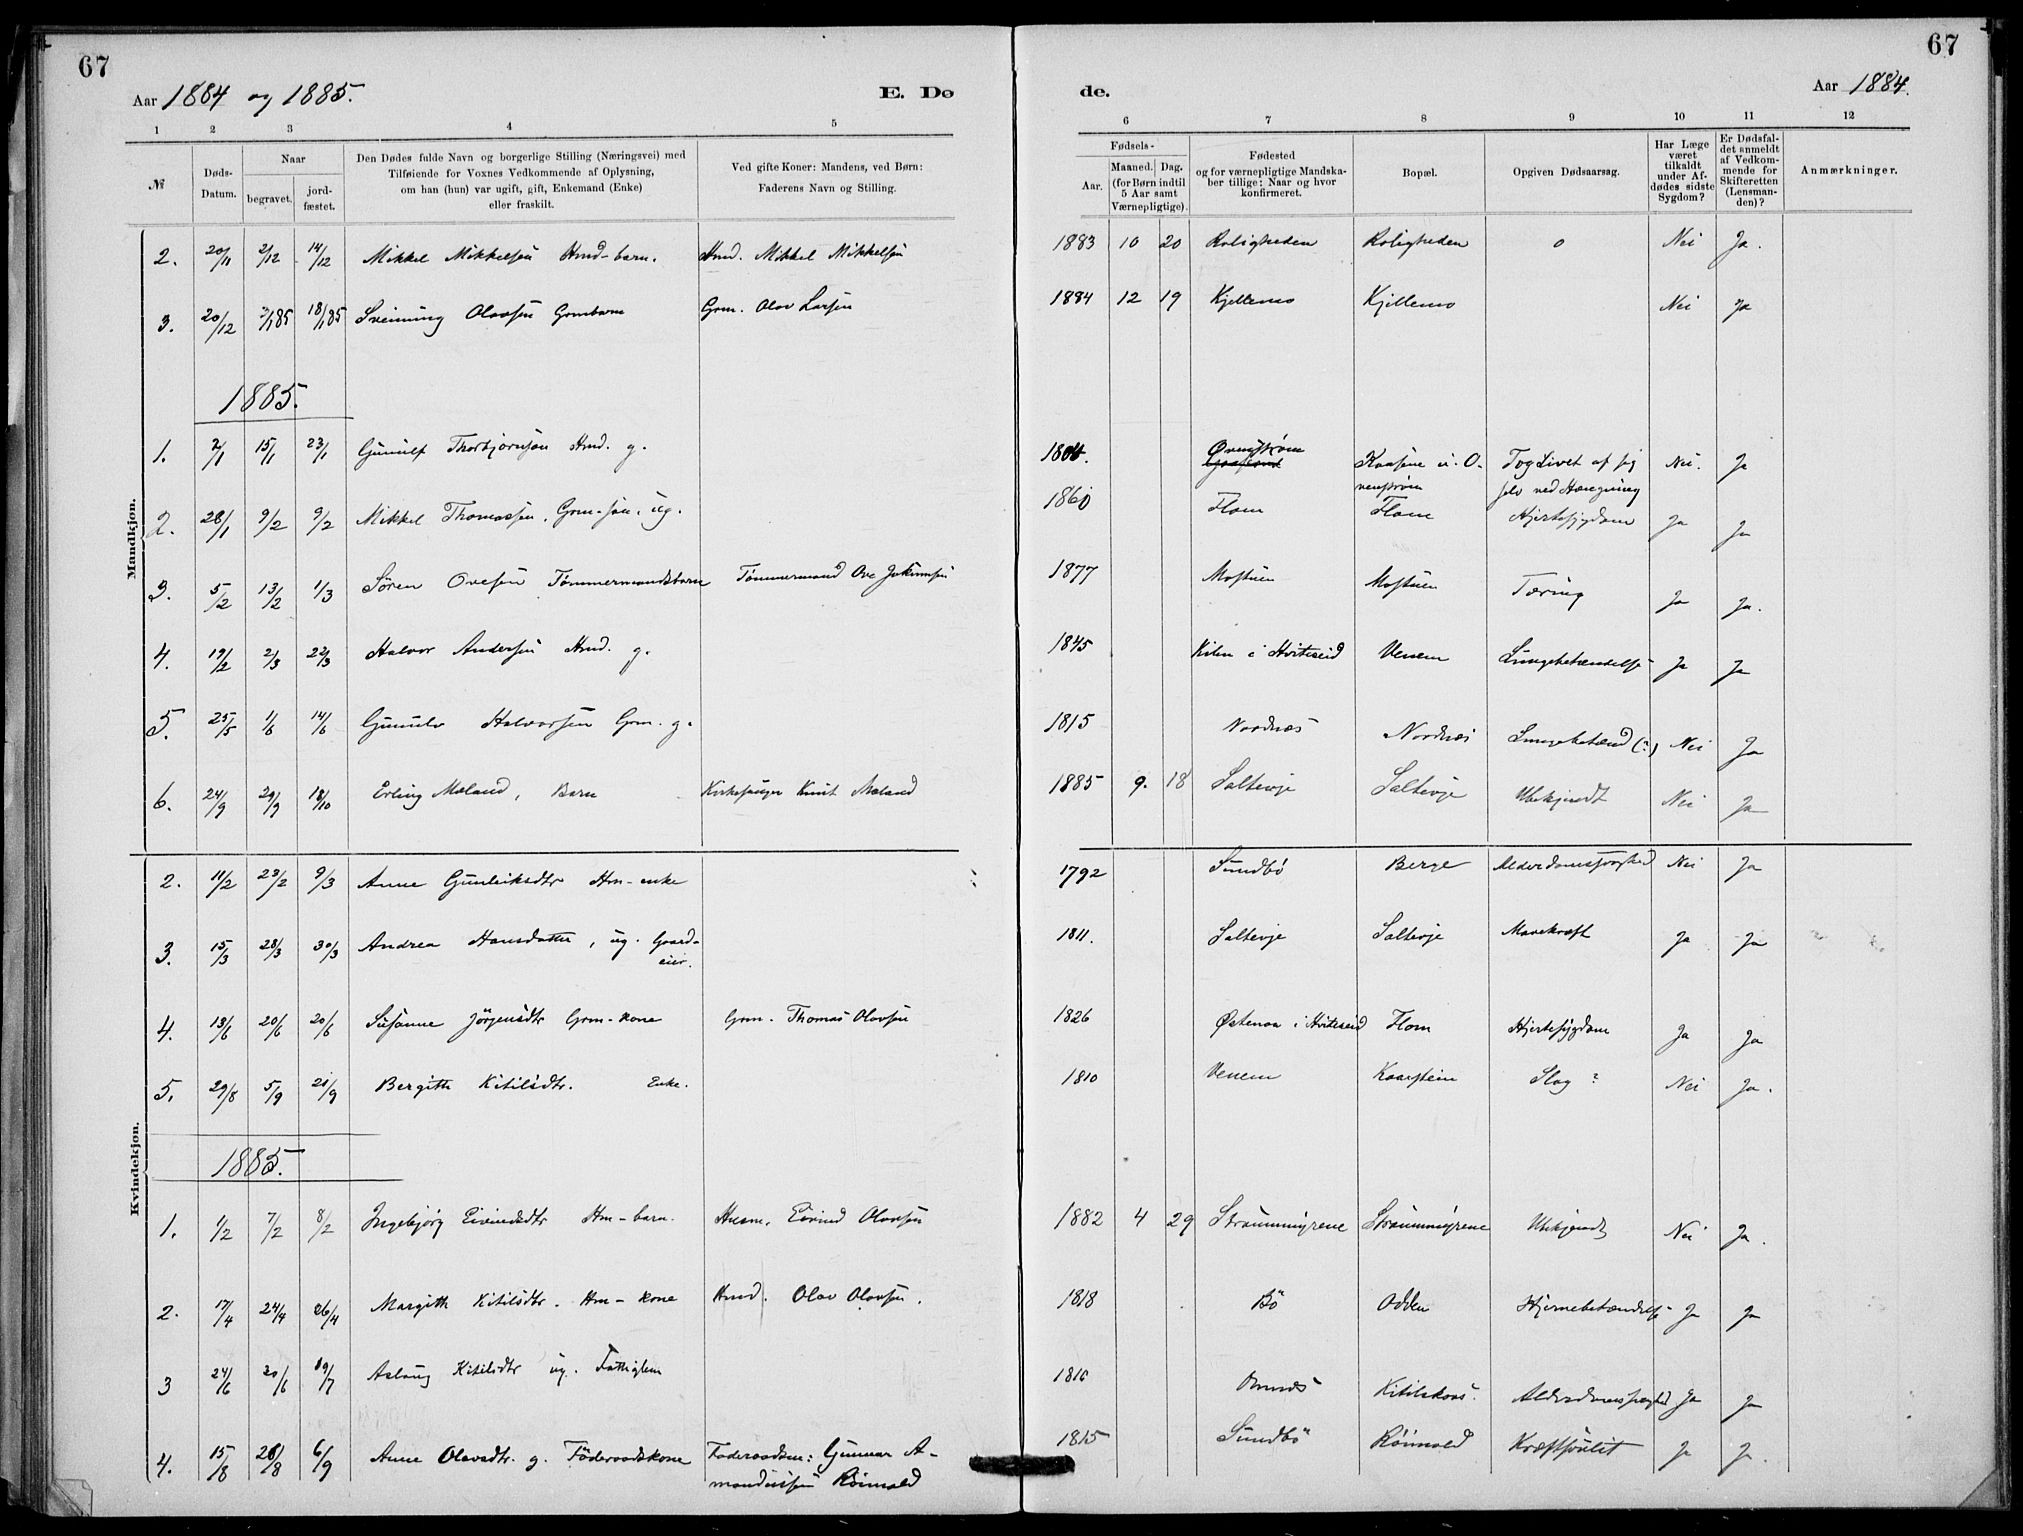 67
67
Aar 1884 og 1885.
E. Dø
de.
Aar 1884.
1 2 3 4 5
6 7 8 9 10 11 12
№
Døds-Datum.
Naar
begravet.
jord-fæstet.
Den Dødes fulde Navn og borgerlige Stilling (Næringsvei) med
Tilføiende for Voxnes Vedkommende af Oplysning,
om han (hun) var ugift, gift, Enkemand (Enke)
eller fraskilt.
Ved gifte Koner: Mandens, ved Børn:
Faderens Navn og Stilling.
Fødsels-
Aar.
Maaned. Dag.
(for Børn indtil
5 Aar samt
Værnepligtige).
Fødested
og for værnepligtige Mandska-
ber tillige: Naar og hvor
konfirmeret.
Bopæl.
Opgiven Dødsaarsag.
Har Læge
været
tilkaldt
under Af-
dødes sidste
Sygdom?
Er Dødsfal-
det anmeldt
af Vedkom-
mende for
Skifteretten
(Lensman-
den)?
Anmærkninger.
Mandkjøn.
2. 20/11 2/12 14/12 Mikkel Mikkelsen Hmd-barn. Hmd. Mikkel Mikkelsen 1883 10 20 Roligheden Roligheden o Nei Ja.
3. 20/12 18/1 85 Sveinung Olavsen Grmbarn Grm. Olav Larsen 1884 12 19 Kjellemo Kjellemo Nei Ja
1885.
1. 2/1 15/1 23/1 Gunulf Thorbjørnsen Hmd. g. Kaasene u. O- Tog Livet af sig Nei. Ja
venstrøm selv ved Hængning
2. 28/1 9/2 9/2 Mikkel Thomassen, Grm-søn, ug. 1860 Flom Flom Hjertesygdom Ja Ja
3. 5/2 13/2 1/3 Søren Ovesen Tømmermandsbarn Tømmermand Ove Jokumsen 1877 Mostuen Mostuen Tæring Ja Ja.
4. 19/2 2/3 22/3 Halvor Andersen Hmd. g. 1845 Kilen i Hviteseid Venem Lungebetændelse Ja Ja
5. 25/5 1/6 14/6 Gunulv Halvorsen Grm. g. 1815 Nordnes Nordnes Lungebetænd (?) Nei Ja
6. 24/9 29/9 18/10 Erling Mæland, Barn Kirkesanger Knut Mæland 1885 9. 18 Saltevje Saltevje Ubekjendt Nei Ja
Kvindekjøn.
2. 11/2 23/2 9/3 Anne Gunleiksdtr Hm-enke 1792 Sundbø Berge Alderdomssvaghed Nei Ja
3. 15/3 28/3 30/3 Andrea Hansdatter, ug. Gaard- 1811. Saltevje Saltevje Mavekræft Ja Ja
eier.
4. 13/6 20/6 20/6 Susanne Jørgensdtr Grm-kone Grm. Thomas Olavsen 1826 Østenaa i Hviteseid Flom Hjertesygdom Ja Ja
5. 29/8 5/9 21/9 Bergith Kitilsdtr. Enke. 1810 Venem Kaarstein Slag ? Nei Ja.
1885.
1. 1/2 7/2 8/2 Ingebjørg Eivindsdtr Hm-barn. Husm. Eivind Olavsen 1882 4 29 Straummyrene Straummyrene Ubekjendt Nei Ja.
2. 17/4 24/4 26/4 Margith Kitilsdtr. Hm-kone Hmd. Olav Olavsen. 1818 Bø Odden Hjernebetændelse Ja Ja
3 24/6 30/6 19/7 Aslaug Kitilsdtr ug. Fattiglem 1816 Kitilskaas. Alderdomssvaghed Ja Ja
4. 15/8 28/8 6/9 Anne Olavsdtr. g. Føderaadskone Føderaadsm: Gunnar A- 1815 Sundbø Røimold Kræftsvulst Ja Ja.
mundessen Røimold